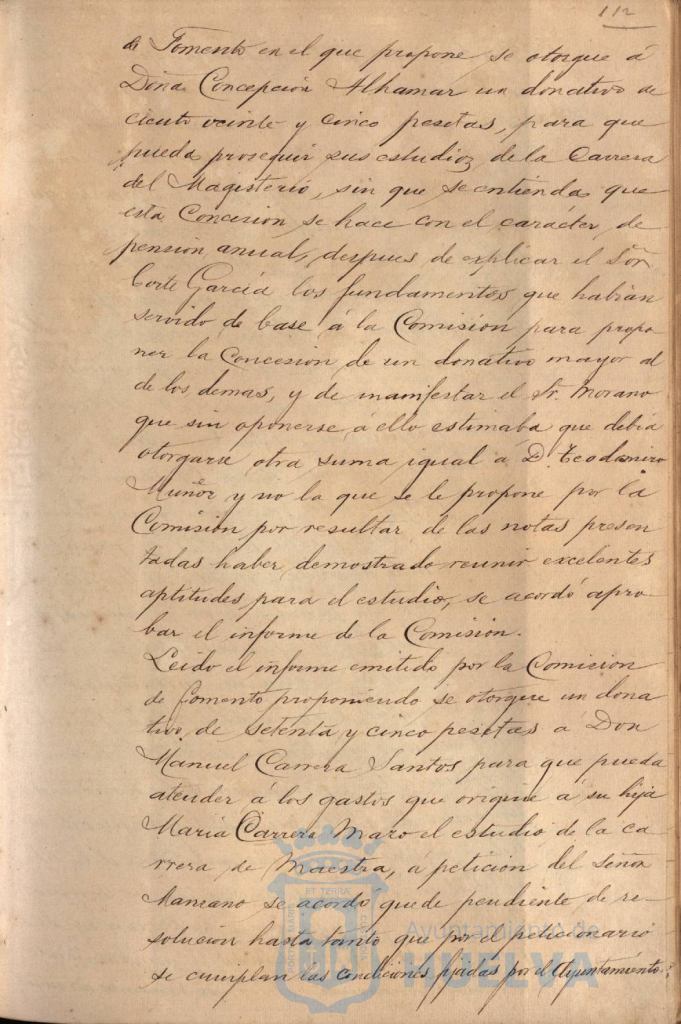 112
de Fomento en el que propone se otorgue á
Doña Concepción Alhamar un donativo de
ciento veinte y cinco pesetas, para que
pueda proseguir sus estudios de la Carrera
del Magisterio, sin que se entienda que
esta Concesion se hace con el carácter de
pension anual, despues de explicar el Sõr.
Corte García los fundamentos que habian
servido de base á la Comisión para propo
ner la Concesion de un donativo mayor al
de los demas, y de manifestar el Sr. Morano
que sin oponerse á ello estimaba que debia
otorgarse otra suma igual á D. Teodomiro
Muñoz y no la que se le propone por la
Comision por resultar de las notas presen
tadas haber demostrado reunir excelentes
aptitudes para el estudio, se acordó apro-
bar el informe de la Comision.
Leido el informe emitido por la Comision
de fomento proponiendo se otorgue un dona
tivo de setenta y cinco pesetas á Don
Manuel Carrera Santos para que pueda
atender á los gastos que origine á su hija
María Carrera Maro el estudio de la ca
rrera de Maestra, á peticion del Señor
Manzano se acordó quede pendiente de re-
solucion hasta tanto que por el peticionario
se cumplan las condiciones fijadas por el Ayuntamiento.
Ayuntamiento de
HUELVA